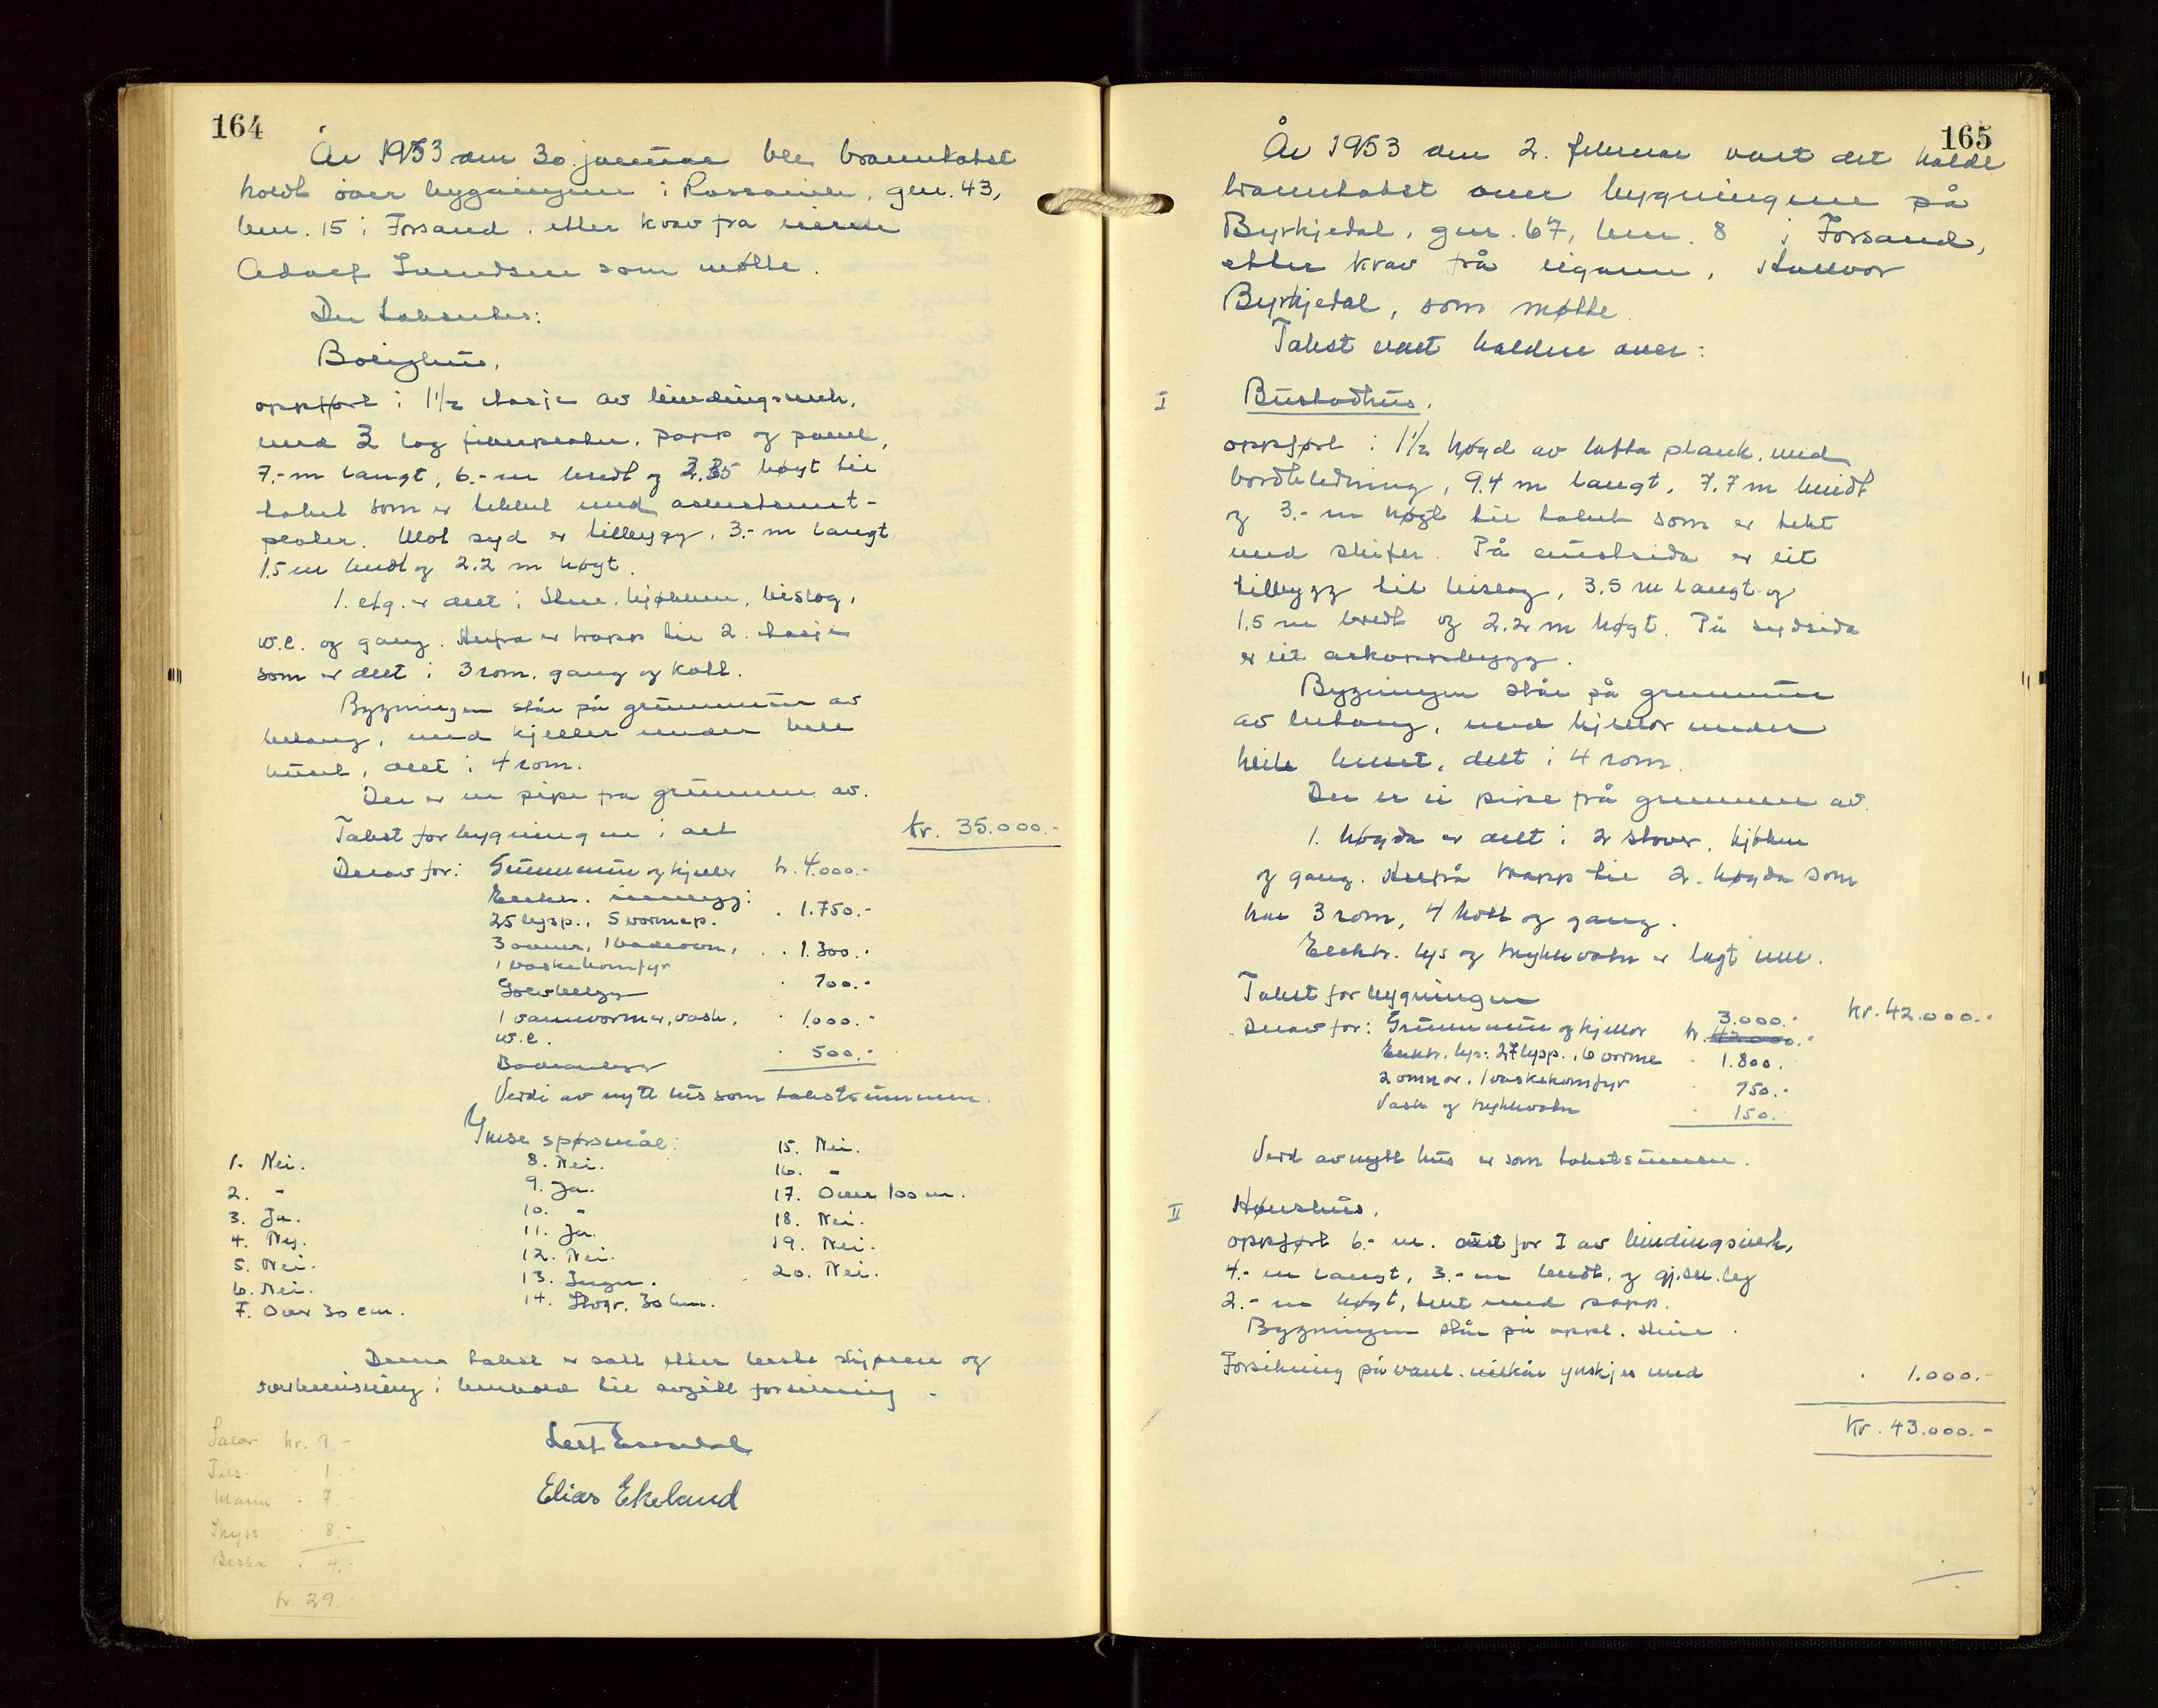 164
År 1953 den 30. januar ble branntakst
holdt over bygningene i Rossavik, gnr. 43,
bnr. 15 i Forsand, etter krav fra eieren
Adolf Svendsen som møtte.
Der takseres:
Bolighus,
oppført i 1 1/2 etasje av bindingsverk,
med 2 lag fiberplater, papp og panel,
7.- m langt, 6.- m bredt og 3.35 høyt til
taket som er tekket med asbestsement-
plater. Mot syd er tilbygg, 3.- m langt
1.5 m bredt og 2.2 m høyt.
1. etg. er delt i stue, kjøkken, bislag,
w.c. og gang. Herfra er trapp til 2. etasje
som er delt i 3 rom, gang og kott.
Bygningen står på grunnmur av
betong, med kjeller under hele
huset, delt i 4 rom.
Der er en pipe fra grunnen av.
Takst for bygningen i alt kr. 35.000.-
Derav for: Grunnmur og kjeller kr. 4.000.-
Elektr. innlegg:
25 lysp., 5 varmep. " 1.750.-
3 ovner, 1 badeovn, " 1.300.-
1 vaskekomfyr
Golvbelegg " 700.-
1 vannvarmer, vask, " 1.000.-
w.c.
Badeanlegg " 500.-
Verdi av nytt hus som takstsummen.
Ymse spørsmål:
1. Nei.
2. "
3. Ja.
4. Nei.
5. Nei.
6. Nei.
7. Over 30 cm.
8. Nei.
9. Ja.
10. "
11. Ja.
12. Nei.
13. Ingen.
14. Skogr. 30 km.
15. Nei.
16. "
17. Over 100 m.
18. Nei.
19. Nei.
20. Nei.
Denne takst er satt etter beste skjønn og
overbevisning i henhold til avgitt forsikring.
Elias Ekeland
Salær kr. 9.-
Tils. " 1.-
Mann " 7.
Skyss " 8.-
Beskr " 4.-
kr. 29.-
165
År 1953 den 2. februar vart det halde
branntakst over bygningene på
Byrkjedal, gnr. 67, bnr. 8 i Forsand,
etter krav frå eigaren, Hallvor
Byrkjedal, som møtte.
Takst vart halden over:
I Bustadhus,
oppført i 1 1/2 høgd av lafta plank, med
bordkledning, 9.4 m langt, 7.7 m breidt
og 3.- m høgt til taket som er tekt
med skifer. På austsida er eit
tilbygg til bislag, 3.5 m langt og
1.5 m bredt og 2.2 m høgt. På sydsida
er eit arkoppbygg.
Bygningen står på grunnmur
av betong, med kjellar under
heile huset, delt i 4 rom.
Der er ei pipe frå grunnen av.
1. høgda er delt i 2 stover, kjøken
og gang. Herfrå trapp til 2. høgda som
har 3 rom, 4 kott og gang.
Elektr. lys og trykkvatn er lagt inn.
Takst for bygningen kr. 42.000.-
Derav for: Grunnmur og kjellar kr. 3.000.-
Elektr. lys: 27 lysp., 6 varme " 1.800.
2 omnar, 1 vaskekomfyr " 750.-
Vask og trykkvatn " 150.-
Verd av nytt hus er som takstsummen.
II Hønsehus,
oppført 6.- m. aust for I av bindingsverk,
4.- m langt, 3.- m bredt, og gj.sn.leg
2.- m høgt, tekt med papp.
Bygningen står på oppl. stein.
Forsikring på vanl. vilkår ynskjes med " 1.000.-
Kr. 43.000.-